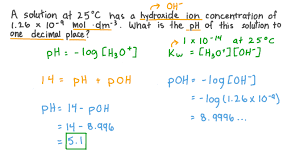 OH⁻
A solution at 25°C has a hydroxide ion concentration of
1.26 x 10⁻⁹ mol dm⁻³. What is the pH of this solution to
one decimal place?
1 x 10⁻¹⁴ at 25°C
pH = -log[H₃O⁺]
Kw = [H₃O⁺][OH⁻]
14 = pH + pOH
pOH = -log[OH⁻]
pH = 14 - pOH
= -log(1.26 x 10⁻⁹)
= 14 - 8.996
= 8.9996...
= 5.1